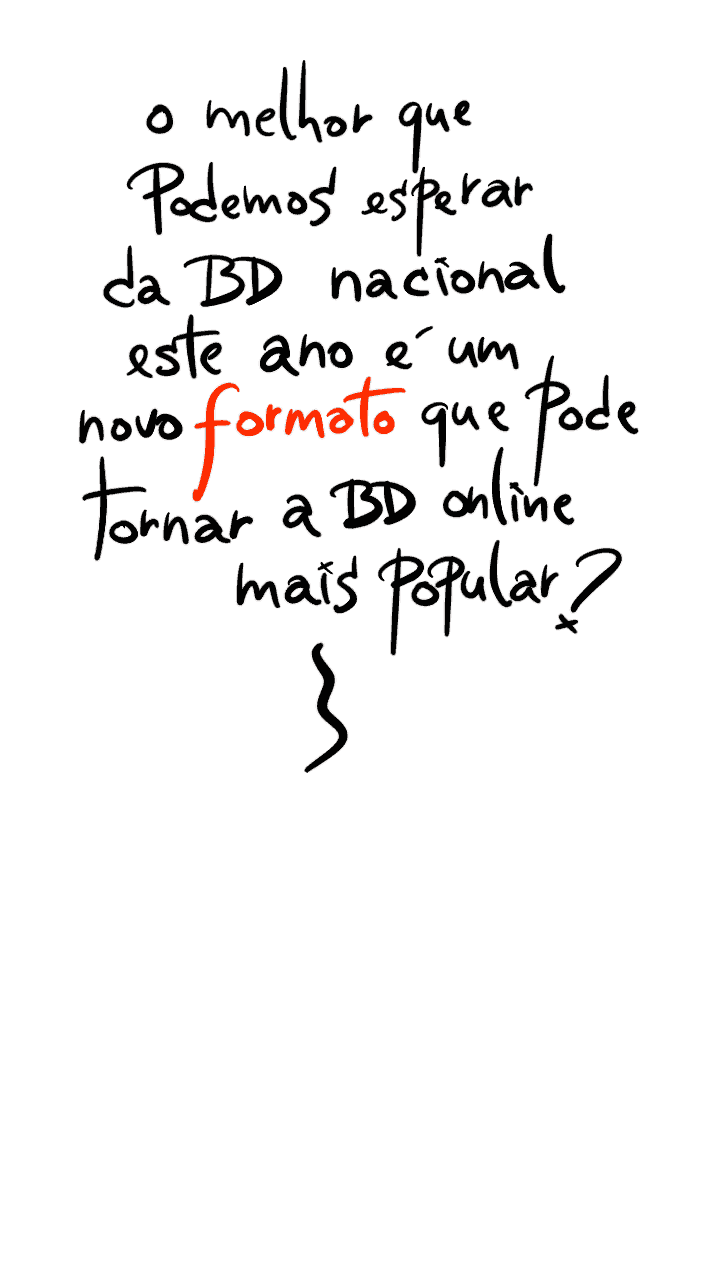 o melhor que
Podemos esperar
da BD nacional
este ano é um
novo formato que pode
tornar a BD online
mais popular?